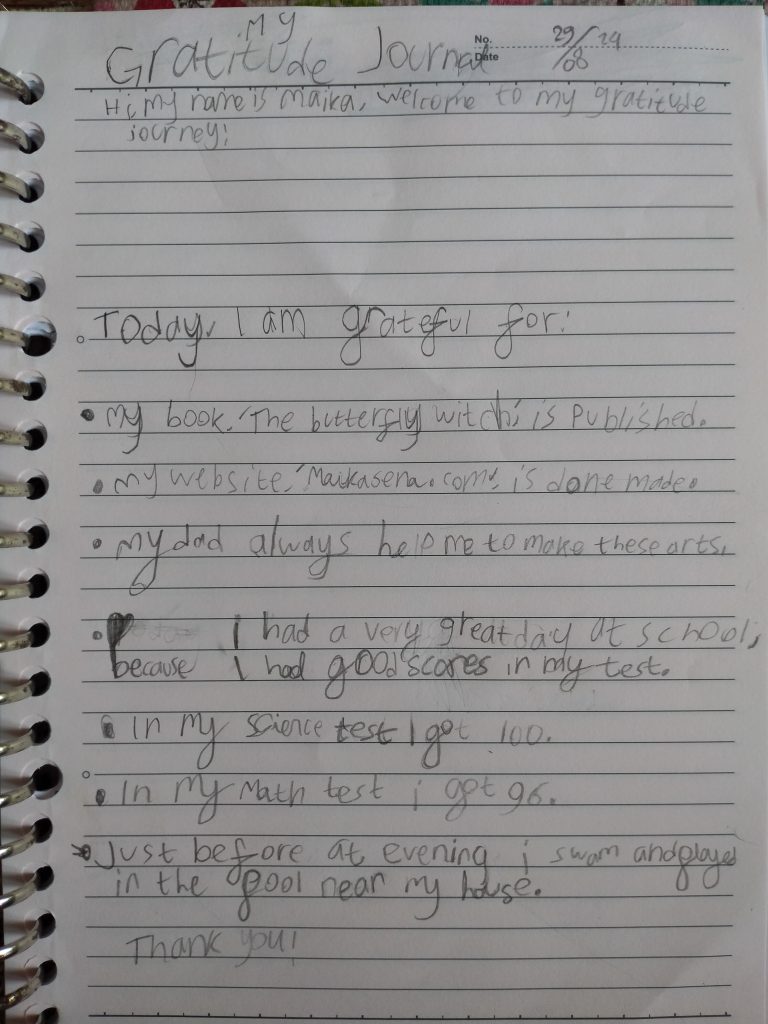 My
Gratitude Journal
No.
Date
29/08 24
Hi, my name is Maika, welcome to my gratitude
journey!
Today, I am grateful for:
• my book, "The butterfly witch", is published.
• my website, "Maikasena.com", is done made.
• my dad always help me to make these arts,
• I had a very great day at school,
because I had good scores in my test.
• In my science test I got 100.
• In my Math test i got 96.
• Just before at evening i swam and played
in the pool near my house.
Thank you!